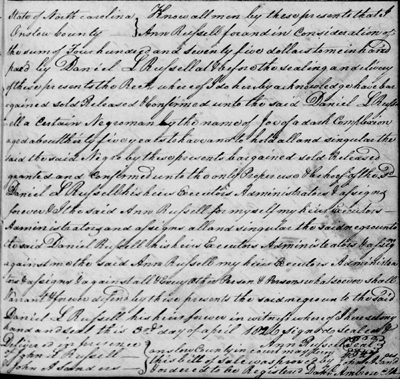 State of North Carolina } Know all men by these presents that I
Onslow County } Ann Russell for and in Consideration of
the sum of Four hundred and seventy five dollars to me in hand
paid by Daniel S Russell at & before the sealing and delivery
of these presents the Rect where of I do hereby acknowledge have bar
gained sold Released & Confirmed unto the said Daniel S Russ
ell a Certain Negro man by the name of Joe of a dark Complexion
aged about thirty five years to have and to hold all and singular the
said the said Negro by these presents bargained sold Released
granted and Confirmed unto the only Proper use & behoof of the sd
Daniel S Russell his heirs Executors Administrators & assigns
forever & I the said Ann Russell for myself my heirs Executors
Administrators and assigns all and singular the said negro unto
to said Daniel Russell his heirs Executors Administrators & assigns
against me the said Ann Russell my heirs Executors Administra
tors & assigns & against all & Every other Person & Persons whatsoever shall
Warrant & forever defend by these presents the said negro unto the said
Daniel S Russell his heirs forever in witness whereof I have set my
hand and seal this 3rd day of april 1826 signed sealed &
Delivered in presence Ann Russell Seal
of John S Russell Onslow County in Court may Term
John A Sanders this bill of sale was proven by
ordered to be Registered